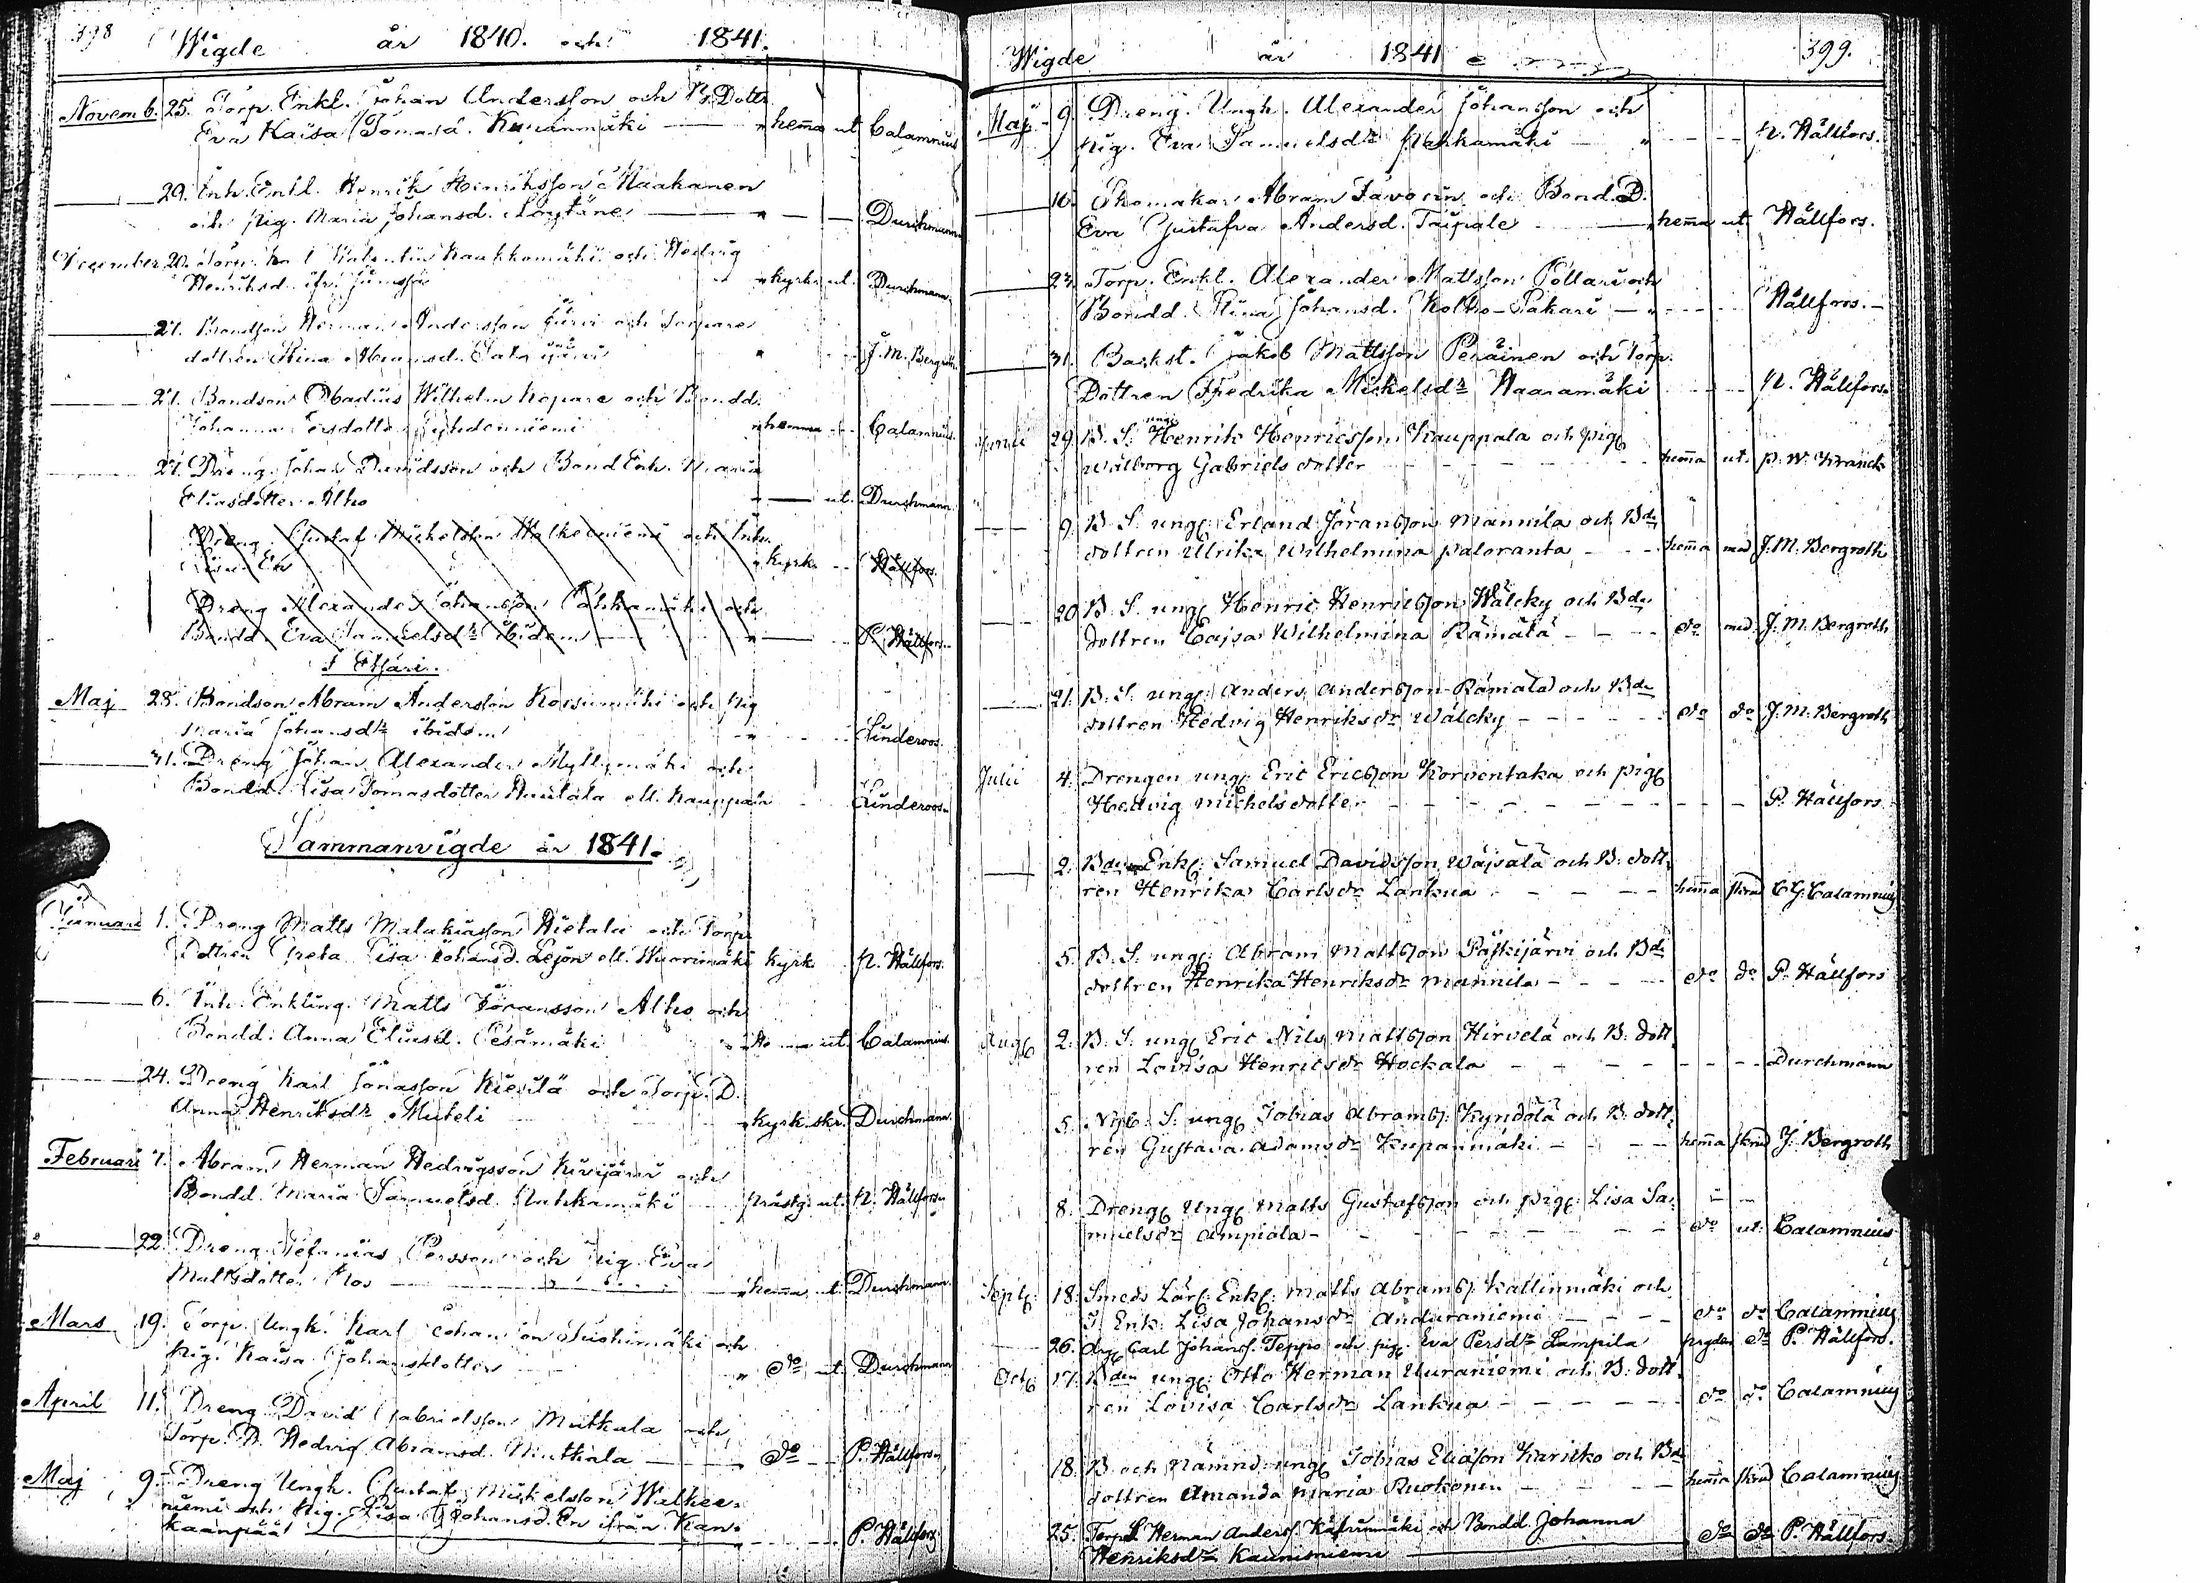 398 Wigde år 1840. och 1841.
Novemb. 25. Torp. Enkl. Johan Andersson och B. Dottr.
Eva Kaisa Tomasd. Kuranmäki — " hem̄a ut Calamnius
— 29. Inh. Enkl. Henrik Henriksson Haakanen
och Pig. Maria Johansd. Löytäne — " — — Durchmann
December 20. Torp. Kaukkomäki och Hedvig
Henriksd. ifr. " kyrk. ut. Durchmann
— 27. Bondson Herman Andersson Järvi och Torpare
dottren Stina Abramsd. " J. M. Bergroth
— 27. Bondson Obadius Wilhelm Kopare och Bondd.
Johanna Persdotter " hemma Calamnius.
27. Dreng Johan Davidsson och Bond Enk. Maria
Eliasdotter Alho " — ut. Durchmann.
Dreng Gustaf Michelsson Walkeeniemi och Inh.
Lisa En " kyrk. Hällfors.
Dreng Alexander Johansson Pahkamäki och
Bondd. Eva Samuelsdr ibidem — " — P. Hällfors.
I Etseri.
Maj 28. Bondson Abram Andersson och Pig
Maria Johansdr ibidem " Linderoos.
— 31. Dreng Johan Alexander Myllymäki och
Bondd. Lisa Tomasdotter Huutala ell. Kauppala Linderoos.
Sammanvigde år 1841.
Januari 1. Dreng Matts Malakiasson Hietala och Torp.
Dottren Greta Lisa Johansd. Lejon ell. Wuorimäki kyrk. P. Hällfors.
— 6. Inh. Enkling. Matts Göransson Alho och
Bondd. Anna Eliasd. Pesämäki " He — ut. Calamnius.
— 24. Dreng Karl Jonasson Kiesilä och Torp. D.
Anna Henriksdr Muteli " kyrk. skr. Durchmann.
Februari 7. Abram Herman Hedvigsson Kivijärvi och
Bondd. Maria Samuelsd. Pahkamäki prästg. ut. P. Hällfors
" — 22. Dreng Stefanias Persson och Pig. Eva
Mattsdotter — " hem̄a ut. Durchmann.
Mars 19. Torp. Ungk. Karl Johansson Tuohimäki och
Pig. Kaisa Johansdotter " do ut. Durchmann
April 11. Dreng David Gabrielsson Mutkala och
Torp. D. Hedvig Abramsd. Mutkala — " do — P. Hällfors
Maj 9. Dreng Ungk. Gustaf Mickelsson Walkee-
niemi och Pig. Lisa Johansd. En ifrån Kan-
kaanpää P. Hällfors
Wigde år 1841 399.
Maj 9. Dreng. Ungk. Alexander Johansson och
Pig. Eva Samuelsdr Pahkamäki " — — P. Hällfors.
— 16. Skomakar Abram Favorin och Bond. D.
Eva Gustafva Andersd. Taipale — hem̄a ut Hällfors.
— 23. Torp. Enkl. Alexander Mattsson Pollari och
Bondd. Stina Johansd. Kolho-Pakari — " — Hällfors. —
— 31. Backst. Jakob Mattsson Peräinen och Torp.
Dottren Fredrika Mickelsdr Haaramäki — — P. Hällfors.
Junii 29. B. S. ung. Henrik Henricsson Kauppala och pig.
Walborg Gabriels dotter — — hem̄a ut. P. W. Kranck
— 9. B. S. ung. Erland Jöransson Mannila och Bde
dottren Ulrika Wilhelmina Paloranta — — hem̄a med J. M. Bergroth
— 20 B. S. ung. Henric Henricsson Wälcky och Bde
dottren Cajsa Wilhelmina Rämälä — — do med J. M. Bergroth
— 21. B. S. ung. Anders Andersson Rämälä och Bde
dottren Hedvig Henriksdr Wälcky — — do do J. M. Bergroth
Julii 4. Drengen ung. Eric Ericsson Korventaka och pig.
Hedvig Michelsdotter — — P. Hällfors.
— 2. Bde Enk. Samuel Davidsson Wäjsälä och B. dott-
ren Henrika Carlsdr Lankua — — hem̄a skrud C. G. Calamnius
5. B. S. ung. Abram Mattsson Päskijärvi och Bde
dottren Henrika Henriksdr Mannila — — do do P. Hällfors
Aug. 2. B. S. ung. Eric Nils Mattsson Hirvelä och B. dott-
ren Lovisa Henricsdr Hockala — — Durchmann
5. Nyb. S. ung. Tobias Abrams. Kyndölä och B. dott-
ren Gustava Adamsdr Kupanmäki — — hem̄a skrud J. Bergroth
8. Dreng. Ung. Matts Gustafsson och pig. Lisa Sa-
muelsdr Ampiala — — do ut. Calamnius
Sept. 18. Smeds Lärl. Enk. Matts Abrams. Kallinmäki och
I. Enk. Lisa Johansdr Anduraniemi — — do do Calamnius
— 26. drg. Carl Johans. Teppo och pig. Eva Persdr Lampila prgden do P. Hällfors.
Oct. 17. Bden ung. Otto Herman Uuraniemi och B. dott-
ren Lovisa Carlsdr Lankua — — do do Calamnius
18. B och Nämnd. ung. Tobias Eliasson Karikko och Bde
dottren Amanda Maria Ruokonen — hem̄a skrud Calamnius
25. Torp. S. Herman Anders. och Bondd. Johanna
Henriksdr Kaunisniemi — do do P. Hällfors.